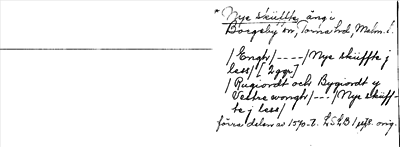 * Nye sküffte äng i
Borgeby sn, Torna hd, Malm. l.
/ Engtr/ ---- / Nye sküffte j
less/ [2 ggr]
/ Rugiordt och Bygiordt y
Vestre wongtr/ --- / Nye sküff-
te j less/
förra delen av 1570-t. LSLB 1 orig.